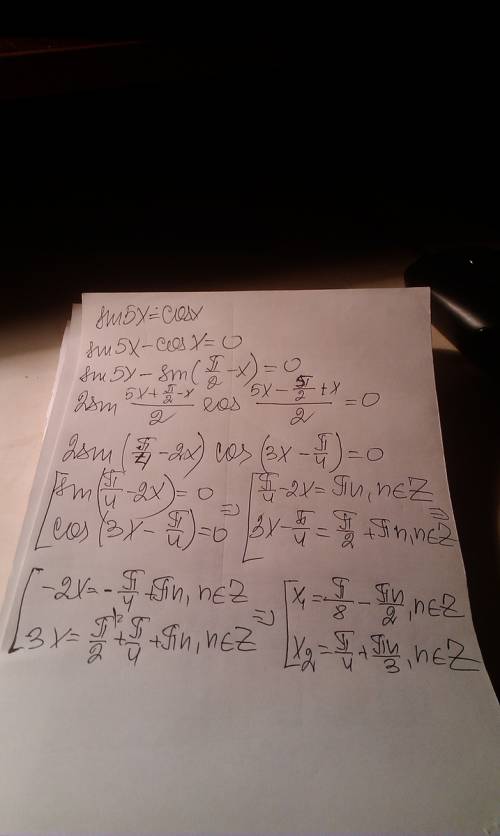 sin5x=cosx
sin5x-cosx=0
sin5x-sin(π/2-x)=0
2sin (5x+π/2-x)/2 cos (5x-π/2+x)/2 =0
2sin(π/4-2x) cos(3x-π/4)=0
[sin(π/4-2x)=0 => [π/4-2x=πn, n∈Z =>
cos(3x-π/4)=0 3x-π/4=π/2+πn, n∈Z
[-2x=-π/4+πn, n∈Z => [x₁=π/8-πn/2, n∈Z
3x=π/2+π/4+πn, n∈Z x₂=π/4+πn/3, n∈Z